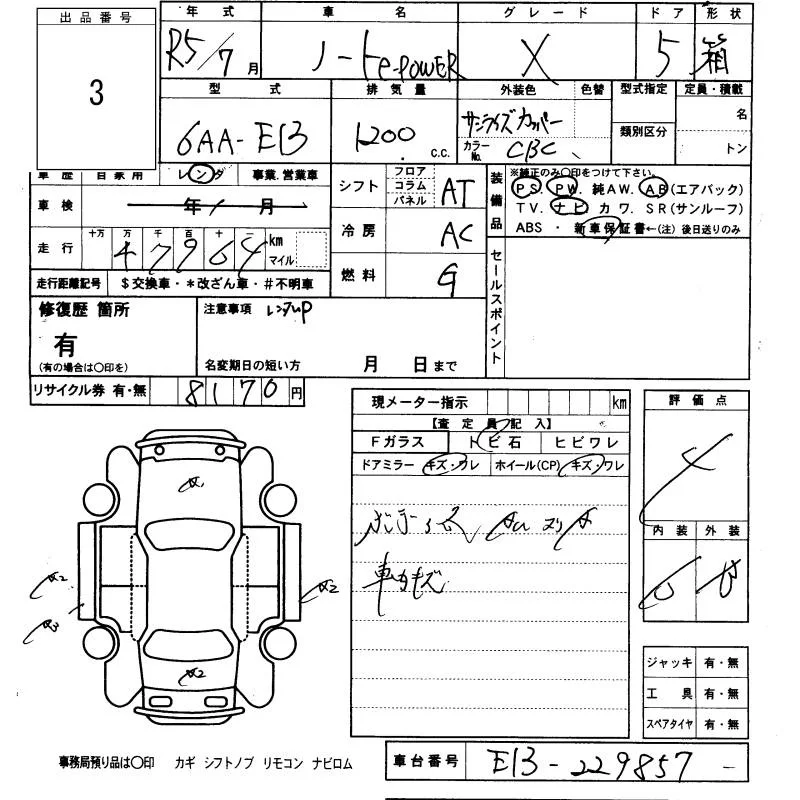 出品番号 年 式 車 名 グレード ドア 形状
3 R5/7月 ノートe-POWER X 5 箱
型 式 排 気 量 外装色 色替 型式指定 定員・積載
6AA-E13 1200 c.c. サンライズカッパー 名
カラーNo. CBC 類別区分 トン
車歴 自家用 レンタ 事業.営業車
シフト フロア コラム パネル AT
装備品 ※純正のみ○印をつけて下さい。
PS PW. 純AW. AB(エアバック)
TV. ナビ カワ. SR(サンルーフ)
ABS ・ 新車保証書←(注) 後日送りのみ
車検 年 月
冷房 AC
走行 十万 万 千 百 十 一
47964 km マイル
燃料 G
セールスポイント
走行距離記号 $交換車・*改ざん車・#不明車
修復歴 箇所
有
(有の場合は○印を)
注意事項 レンタUP
名変期日の短い方 月 日まで
リサイクル券 有・無 8170円
現メーター指示 km
【査 定 員 記 入】
Fガラス トビ石 ヒビワレ
ドアミラー キズ・ワレ ホイール(CP) キズ・ワレ
車内キズ
評 価 点
4
内装 外装
A1
A2
A2
A3
A2
ジャッキ 有・無
工 具 有・無
スペアタイヤ 有・無
事務局預り品は○印 カギ シフトノブ リモコン ナビロム
車台番号 E13-229857